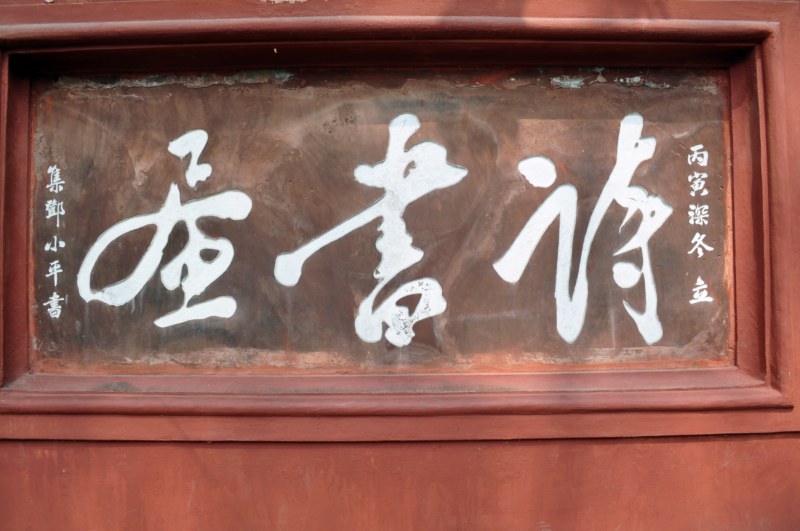 丙寅深冬 立
詩書畫
集鄧小平書